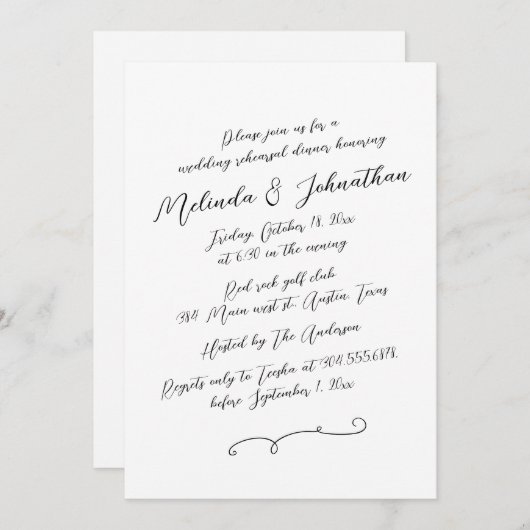 Please join us for a
wedding rehearsal dinner honoring
Melinda & Johnathan
Friday, October 18, 20xx
at 6:30 in the evening
Red rock golf club
384 Main west st., Austin, Texas
Hosted by The Anderson
Regrets only to Teesha at 304.555.6878.
before September 1, 20xx